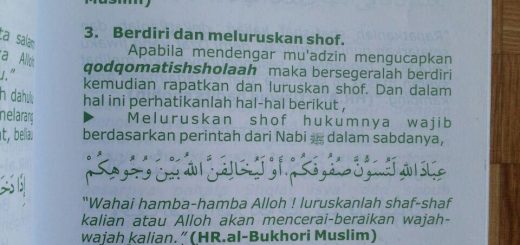 Muslim)
3. Berdiri dan meluruskan shof.
Apabila mendengar mu'adzin mengucapkan
qodqomatishsholaah maka bersegeralah berdiri
kemudian rapatkan dan luruskan shof. Dan dalam
hal ini perhatikanlah hal-hal berikut ,
► Meluruskan shof hukumnya wajib
berdasarkan perintah dari Nabi ﷺ dalam sabdanya,
عِبَادَ اللهِ لَتُسَوُّنَّ صُفُوفَكُمْ. أَوْ لَيُخَالِفَنَّ اللهُ بَيْنَ وُجُوهِكُمْ
"Wahai hamba-hamba Alloh ! luruskanlah shaf-shaf
kalian atau Alloh akan mencerai-beraikan wajah-
wajah kalian." (HR.al-Bukhori Muslim)
ta salam
a Alloh
u."
h dahulu
melarang
at, beliau